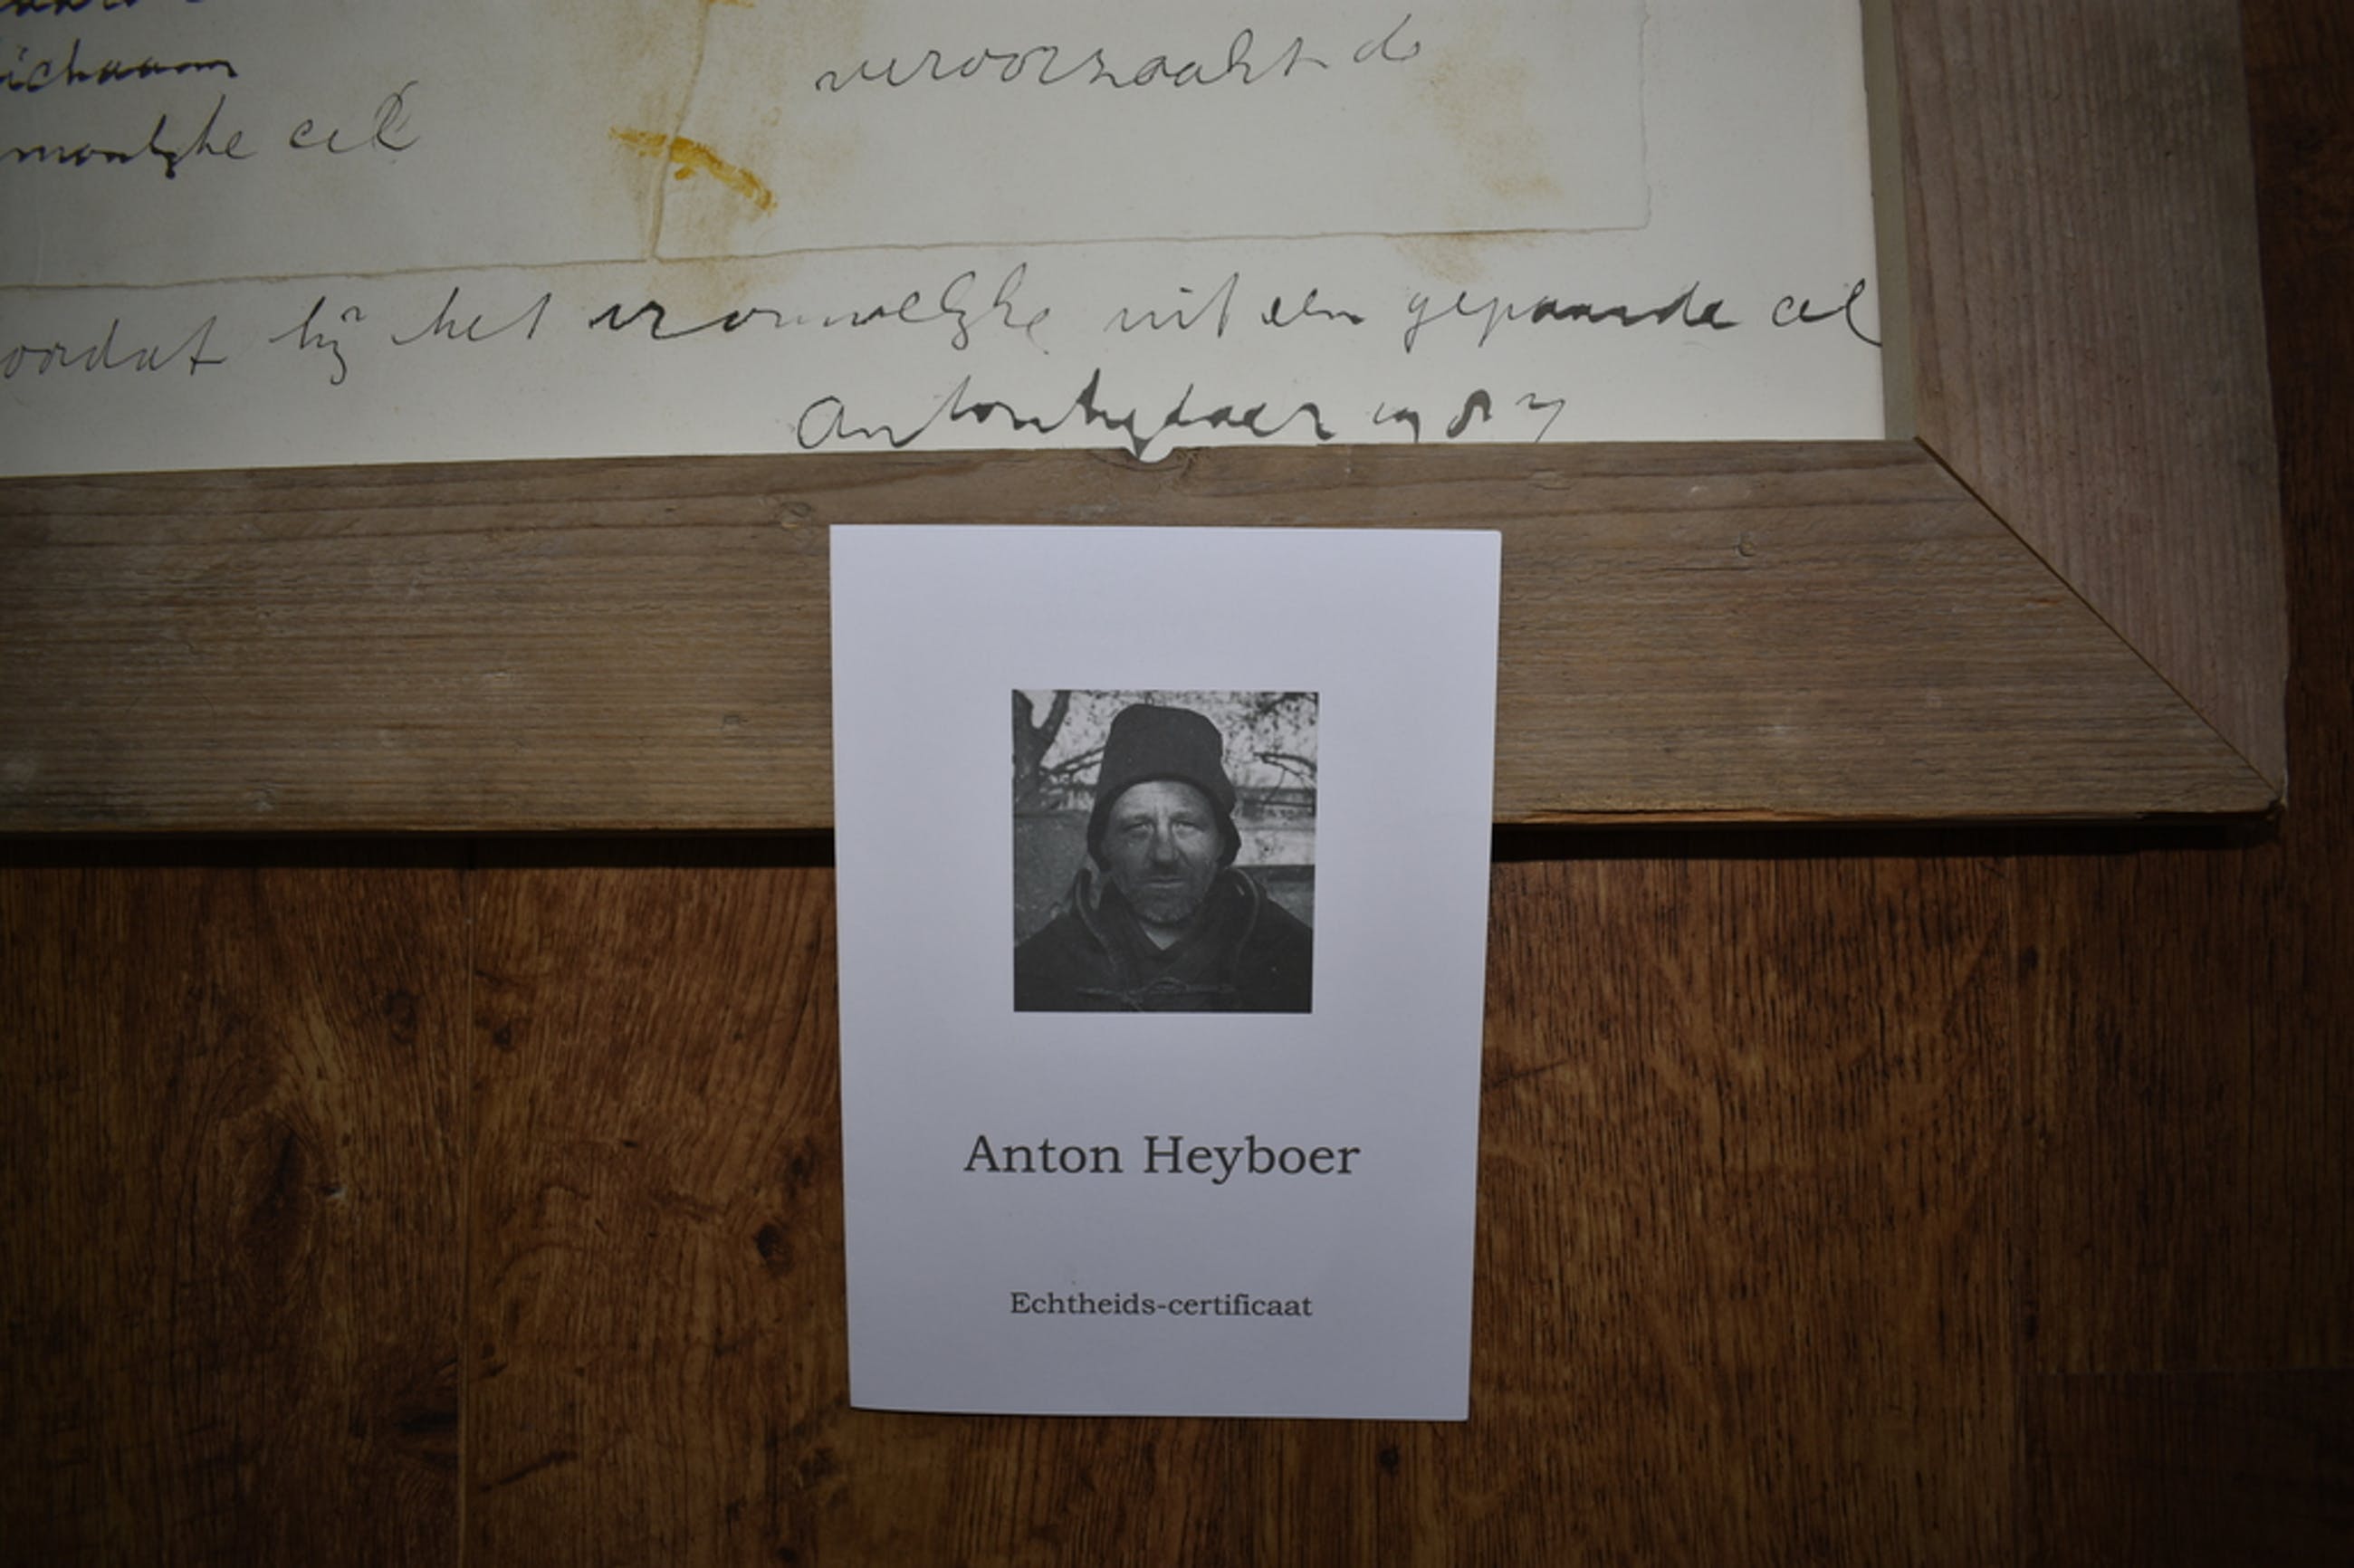 veroorzaakt de
lichaam
cel
oordat hij het vrouwelijke uit een gepaarde cel
Anton Heyboer 1987
Anton Heyboer
Echtheids-certificaat